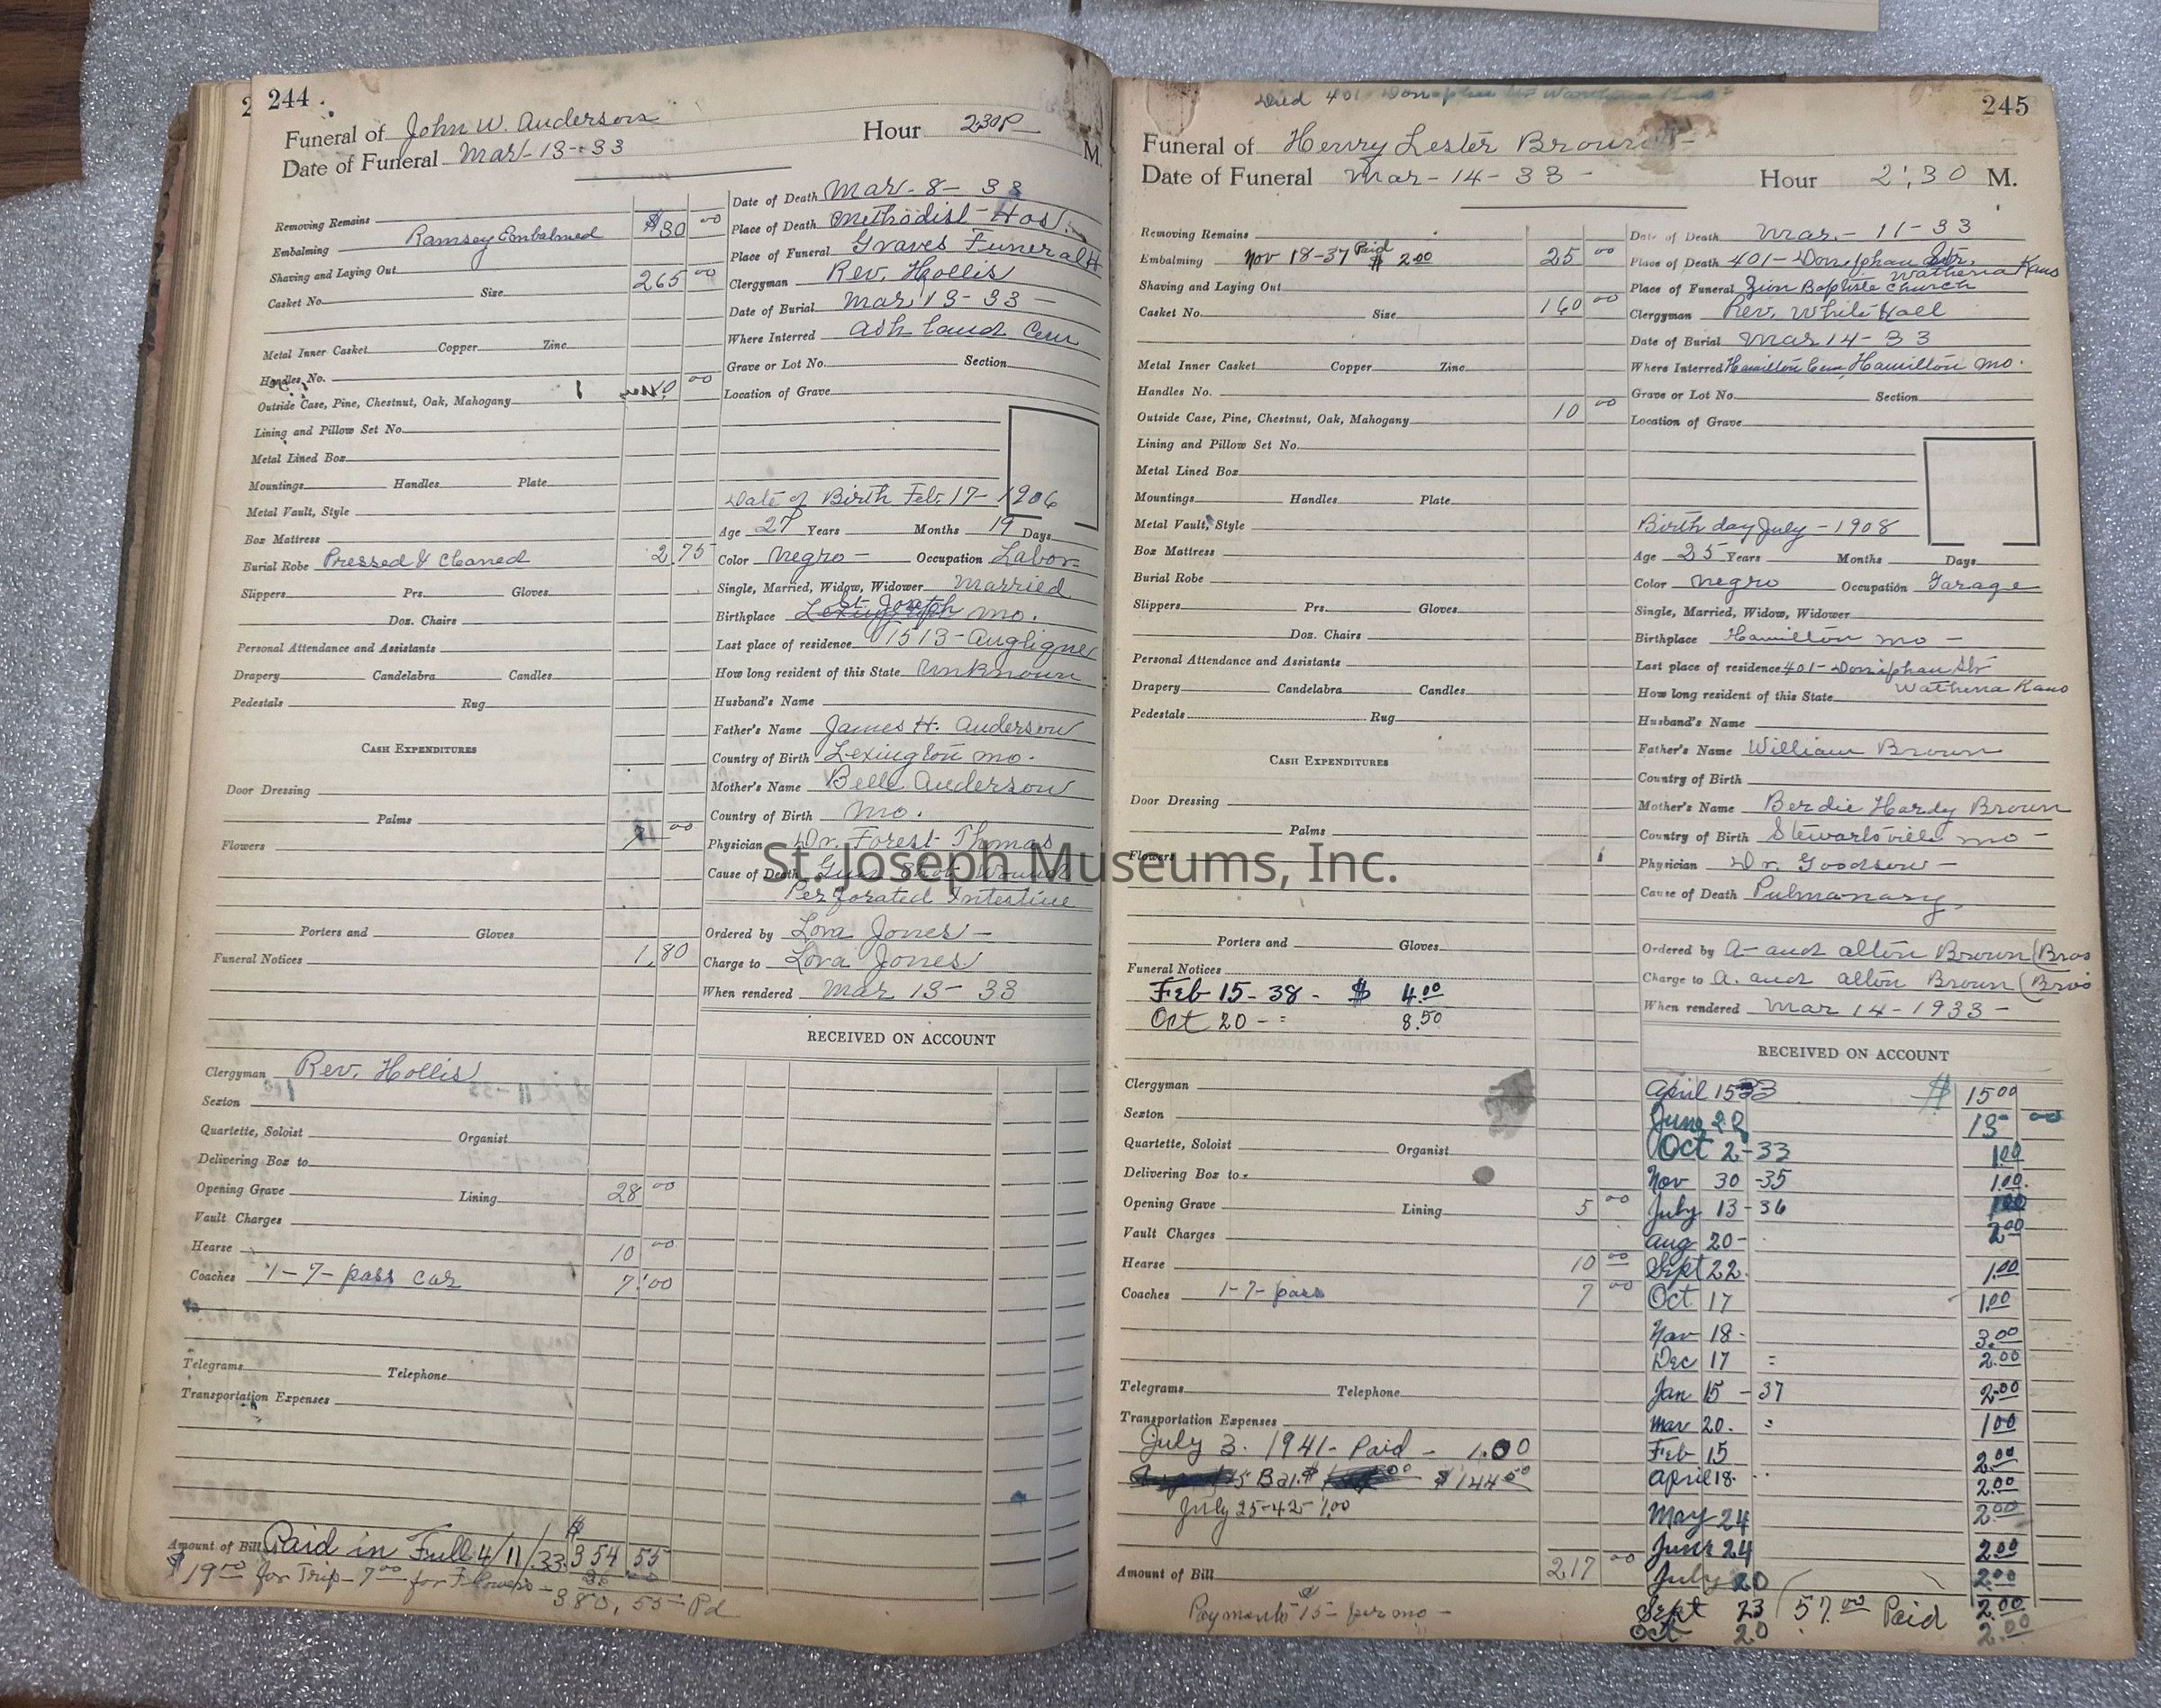 244
Funeral of John W. Anderson Hour 2:30 P M.
Date of Funeral Mar-13-33
Removing Remains
Embalming Ramsey Embalmed $30 00
Shaving and Laying Out
Casket No. Size 265 00
Metal Inner Casket Copper Zinc
Handles No.
Outside Case, Pine, Chestnut, Oak, Mahogany 00
Lining and Pillow Set No.
Metal Lined Box
Mountings Handles Plate
Metal Vault, Style
Box Mattress
Burial Robe Pressed & Cleaned 2 75
Slippers Prs. Gloves
Doz. Chairs
Personal Attendance and Assistants
Drapery Candelabra Candles
Pedestals Rug
CASH EXPENDITURES
Door Dressing
Palms
Flowers 00
Porters and Gloves
Funeral Notices 1.80
Clergyman Rev. Hollis
Sexton
Quartette, Soloist Organist
Delivering Box to
Opening Grave Lining 28 00
Vault Charges
Hearse 10 00
Coaches 1-7-pass car 7.00
Telegrams Telephone
Transportation Expenses
Amount of Bill Paid in Full 4/11/33 $354 55
$19 00 for Trip - 7 00 for Flowers -
380.55 Pd
Date of Death Mar-8-33
Place of Death Methodist Hos.
Place of Funeral Graves Funeral H
Clergyman Rev. Hollis
Date of Burial Mar 13-33-
Where Interred Ashland Cem
Grave or Lot No. Section
Location of Grave
Date of Birth Feb. 17-1906
Age 27 Years Months 19 Days
Color Negro- Occupation Labor
Single, Married, Widow, Widower Married
Birthplace Lexington St. Joseph Mo.
Last place of residence 1513-Angligne
How long resident of this State Unknown
Husband's Name
Father's Name James H. Anderson
Country of Birth Lexington Mo.
Mother's Name Belle Anderson
Country of Birth Mo.
Physician Dr. Forest Thomas
Cause of Death Gun Shot Wounds
Perforated Intestine
Ordered by Lora Jones-
Charge to Lora Jones
When rendered Mar 13-33
RECEIVED ON ACCOUNT
Died 401 Doniphan Str Wathena Kans
245
Funeral of Henry Lester Brown
Date of Funeral Mar-14-33- Hour 2:30 M.
Removing Remains
Embalming Nov 18-37 Paid $2.00 25 00
Shaving and Laying Out
Casket No. Size 160 00
Metal Inner Casket Copper Zinc
Handles No.
Outside Case, Pine, Chestnut, Oak, Mahogany 10 00
Lining and Pillow Set No.
Metal Lined Box
Mountings Handles Plate
Metal Vault, Style
Box Mattress
Burial Robe
Slippers Prs. Gloves
Doz. Chairs
Personal Attendance and Assistants
Drapery Candelabra Candles
Pedestals Rug
CASH EXPENDITURES
Door Dressing
Palms
Flowers
Porters and Gloves
Funeral Notices
Feb 15-38- $ 4.00
Oct 20 - " 8.50
Clergyman
Sexton
Quartette, Soloist Organist
Delivering Box to
Opening Grave Lining 5 00
Vault Charges
Hearse 10 00
Coaches 1-7-pass 7 00
Telegrams Telephone
Transportation Expenses
July 3. 1941- Paid - 1.00
Bal. $144 50
July 25-42- 1.00
Amount of Bill 217 00
Payments $15- per mo-
Date of Death Mar.-11-33
Place of Death 401-Doniphan Str.
Wathena Kans
Place of Funeral Zion Baptiste Church
Clergyman Rev. White Hall
Date of Burial Mar 14-33
Where Interred Hamilton Cem, Hamilton Mo.
Grave or Lot No. Section
Location of Grave
Birthday July-1908
Age 25 Years Months Days
Color Negro Occupation Garage
Single, Married, Widow, Widower
Birthplace Hamilton Mo-
Last place of residence 401-Doniphan Str
How long resident of this State Wathena Kans
Husband's Name
Father's Name William Brown
Country of Birth
Mother's Name Berdie Hardy Brown
Country of Birth Stewartsville Mo-
Physician Dr. Goodson-
Cause of Death Pulmonary
Ordered by A- and Alton Brown (Bros
Charge to A. and Alton Brown (Bros
When rendered Mar 14-1933-
RECEIVED ON ACCOUNT
April 15 33 $ 15 00
June 28 13- 00
Oct 2-33 1.00
Nov 30-35 1.00
July 13-36 1.00
Aug 20- 2.00
Sept 22 1.00
Oct 17 1.00
Nov 18- 3.00
Dec 17 " 2.00
Jan 15-37 2.00
Mar 20. " 1.00
Feb 15 2.00
April 18 " 2.00
May 24 2.00
June 24 2.00
July 20 2.00
Sept 23 (57.00 Paid 2.00
Oct 20 2.00
St. Joseph Museums, Inc.